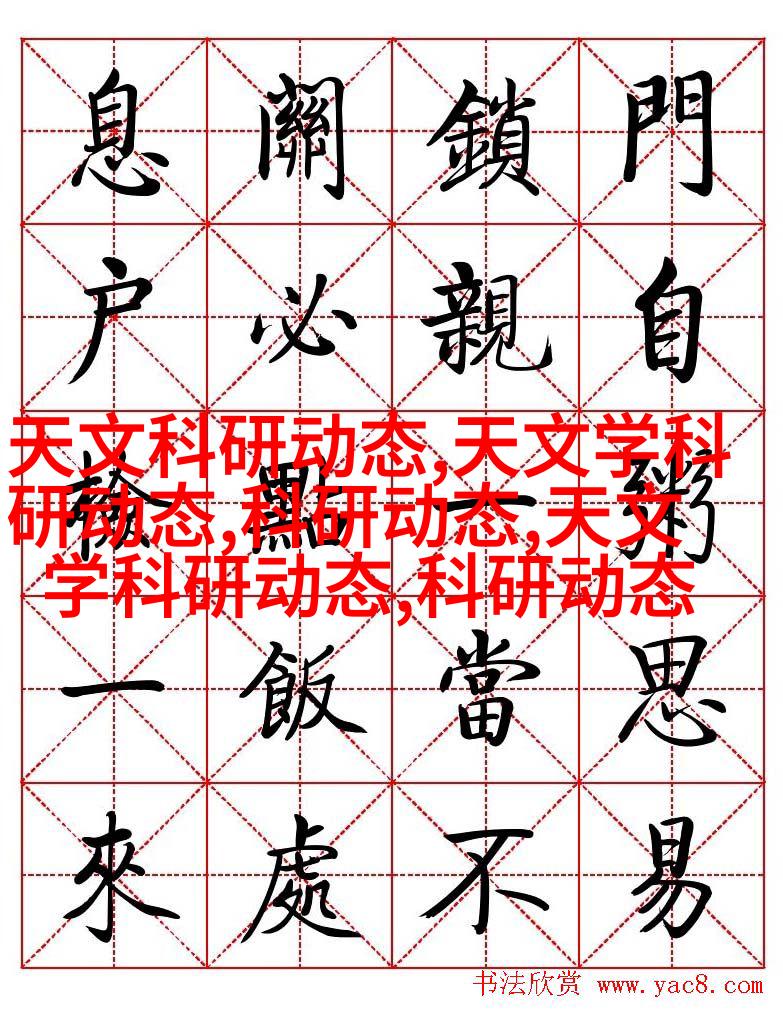 息關鎖門
户必親自
檢點一粥
一飯當思
來處不易
天文科研动态,天文学科
研动态,科研动态,天文
学科研动态,科研动态
书法欣赏 www.yac8.com